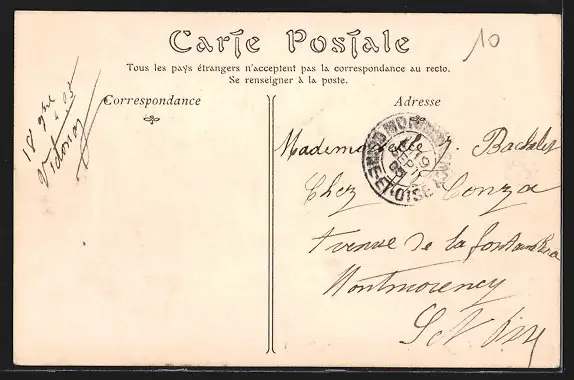 Carte Postale
10
Tous les pays étrangers n'acceptent pas la correspondance au recto.
Se renseigner à la poste.
Correspondance
Adresse
18 9bre 05
Mademoiselle
Chez Conza
Avenue de la
Montmorency
S et Oise
MONTMORENCY
19
SEPT
05
SEINE-ET-OISE